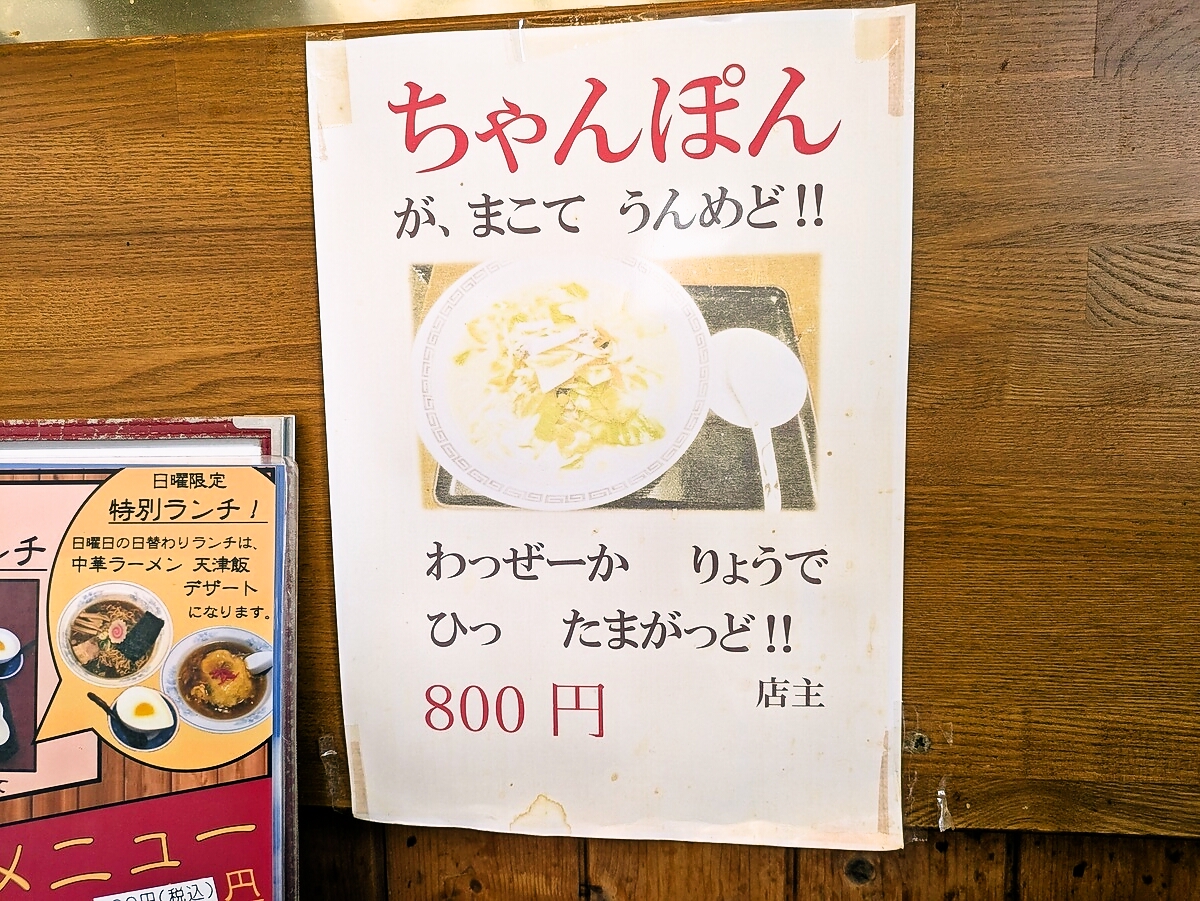 ちゃんぽん
が、まこて うんめど!!
わっぜーか りょうで
ひっ たまがっど!!
800 円
店主
日曜限定
特別ランチ!
日曜日の日替わりランチは、
中華ラーメン 天津飯
デザート
になります。
ンチ
メニュー
円(税込)
円